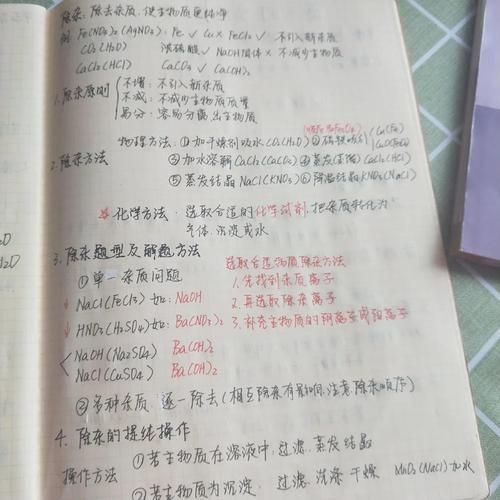 除杂：除去杂质，使主物质更纯净
例：Fe(NO3)2(AgNO3)：Fe √ Cu × FeCl2 √ 不引入新杂质
CO2(H2O) 浓硫酸 √ NaOH固体 × 不减少主物质
CaCl2(HCl) CaCO3 √ Ca(OH)2
1.除杂原则
不增：不引入新杂质
不减：不减少主物质质量
易分：容易分离出主物质
2.除杂方法
物理方法：①加干燥剂吸水CO2(H2O) ②磁铁吸引
C(Fe)
CuO(Fe)
③加水溶解CaCl2(CaCO3) ④蒸发 CaCl2(HCl)
⑤蒸发结晶NaCl(KNO3) ⑥降温结晶KNO3(NaCl)
化学方法：选取合适的化学试剂，把杂质转化为
气体、沉淀或水
3.除杂题型及解题方法
①单一杂质问题
NaCl(FeCl3) 如：NaOH
HNO3(H2SO4) 如：Ba(NO3)2
NaOH(Na2SO4) Ba(OH)2
NaCl(CuSO4) Ba(OH)2
选取合适物质除杂方法
1.先找到杂质离子
2.再选取除杂离子
3.补充主物质的阴离子或阳离子
②多种杂质：逐一除去(相互除杂有影响间，注意除杂顺序)
4.除杂的提纯操作
操作方法
①若主物质在溶液中：过滤、蒸发结晶
②若主物质为沉淀： 过滤、洗涤、干燥 MnO2(NaCl)加水
2O
H2O